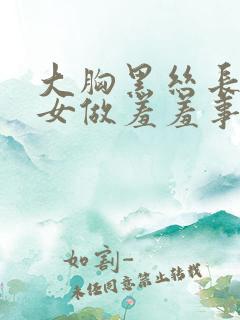 大胸黑丝長
女做羞羞事
如割-
未经同意禁止转载